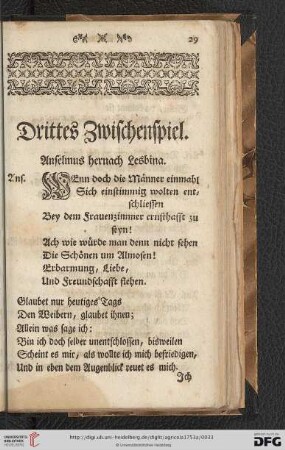 29
Drittes Zwischenspiel.
Anselmus hernach Lesbina.
Ans. WEnn doch die Männer einmahl
Sich einstimmig wolten ent-
schliessen
Bey dem Frauenzimmer ernsthafft zu
seyn!
Ach wie würde man denn nicht sehen
Die Schönen um Almosen!
Erbarmung, Liebe,
Und Freundschafft flehen.
Glaubet nur heutiges Tags
Den Weibern, glaubet ihnen;
Allein was sage ich:
Bin ich doch selber unentschlossen, bisweilen
Scheint es mir, als wollte ich mich befriedigen,
Und in eben dem Augenblick reuet es mich.
Ich
UNIVERSITÄTS-
BIBLIOTHEK
HEIDELBERG
http://digi.ub.uni-heidelberg.de/diglit/
© Universitätsbibliothek Heidelberg
gefördert durch die
DFG